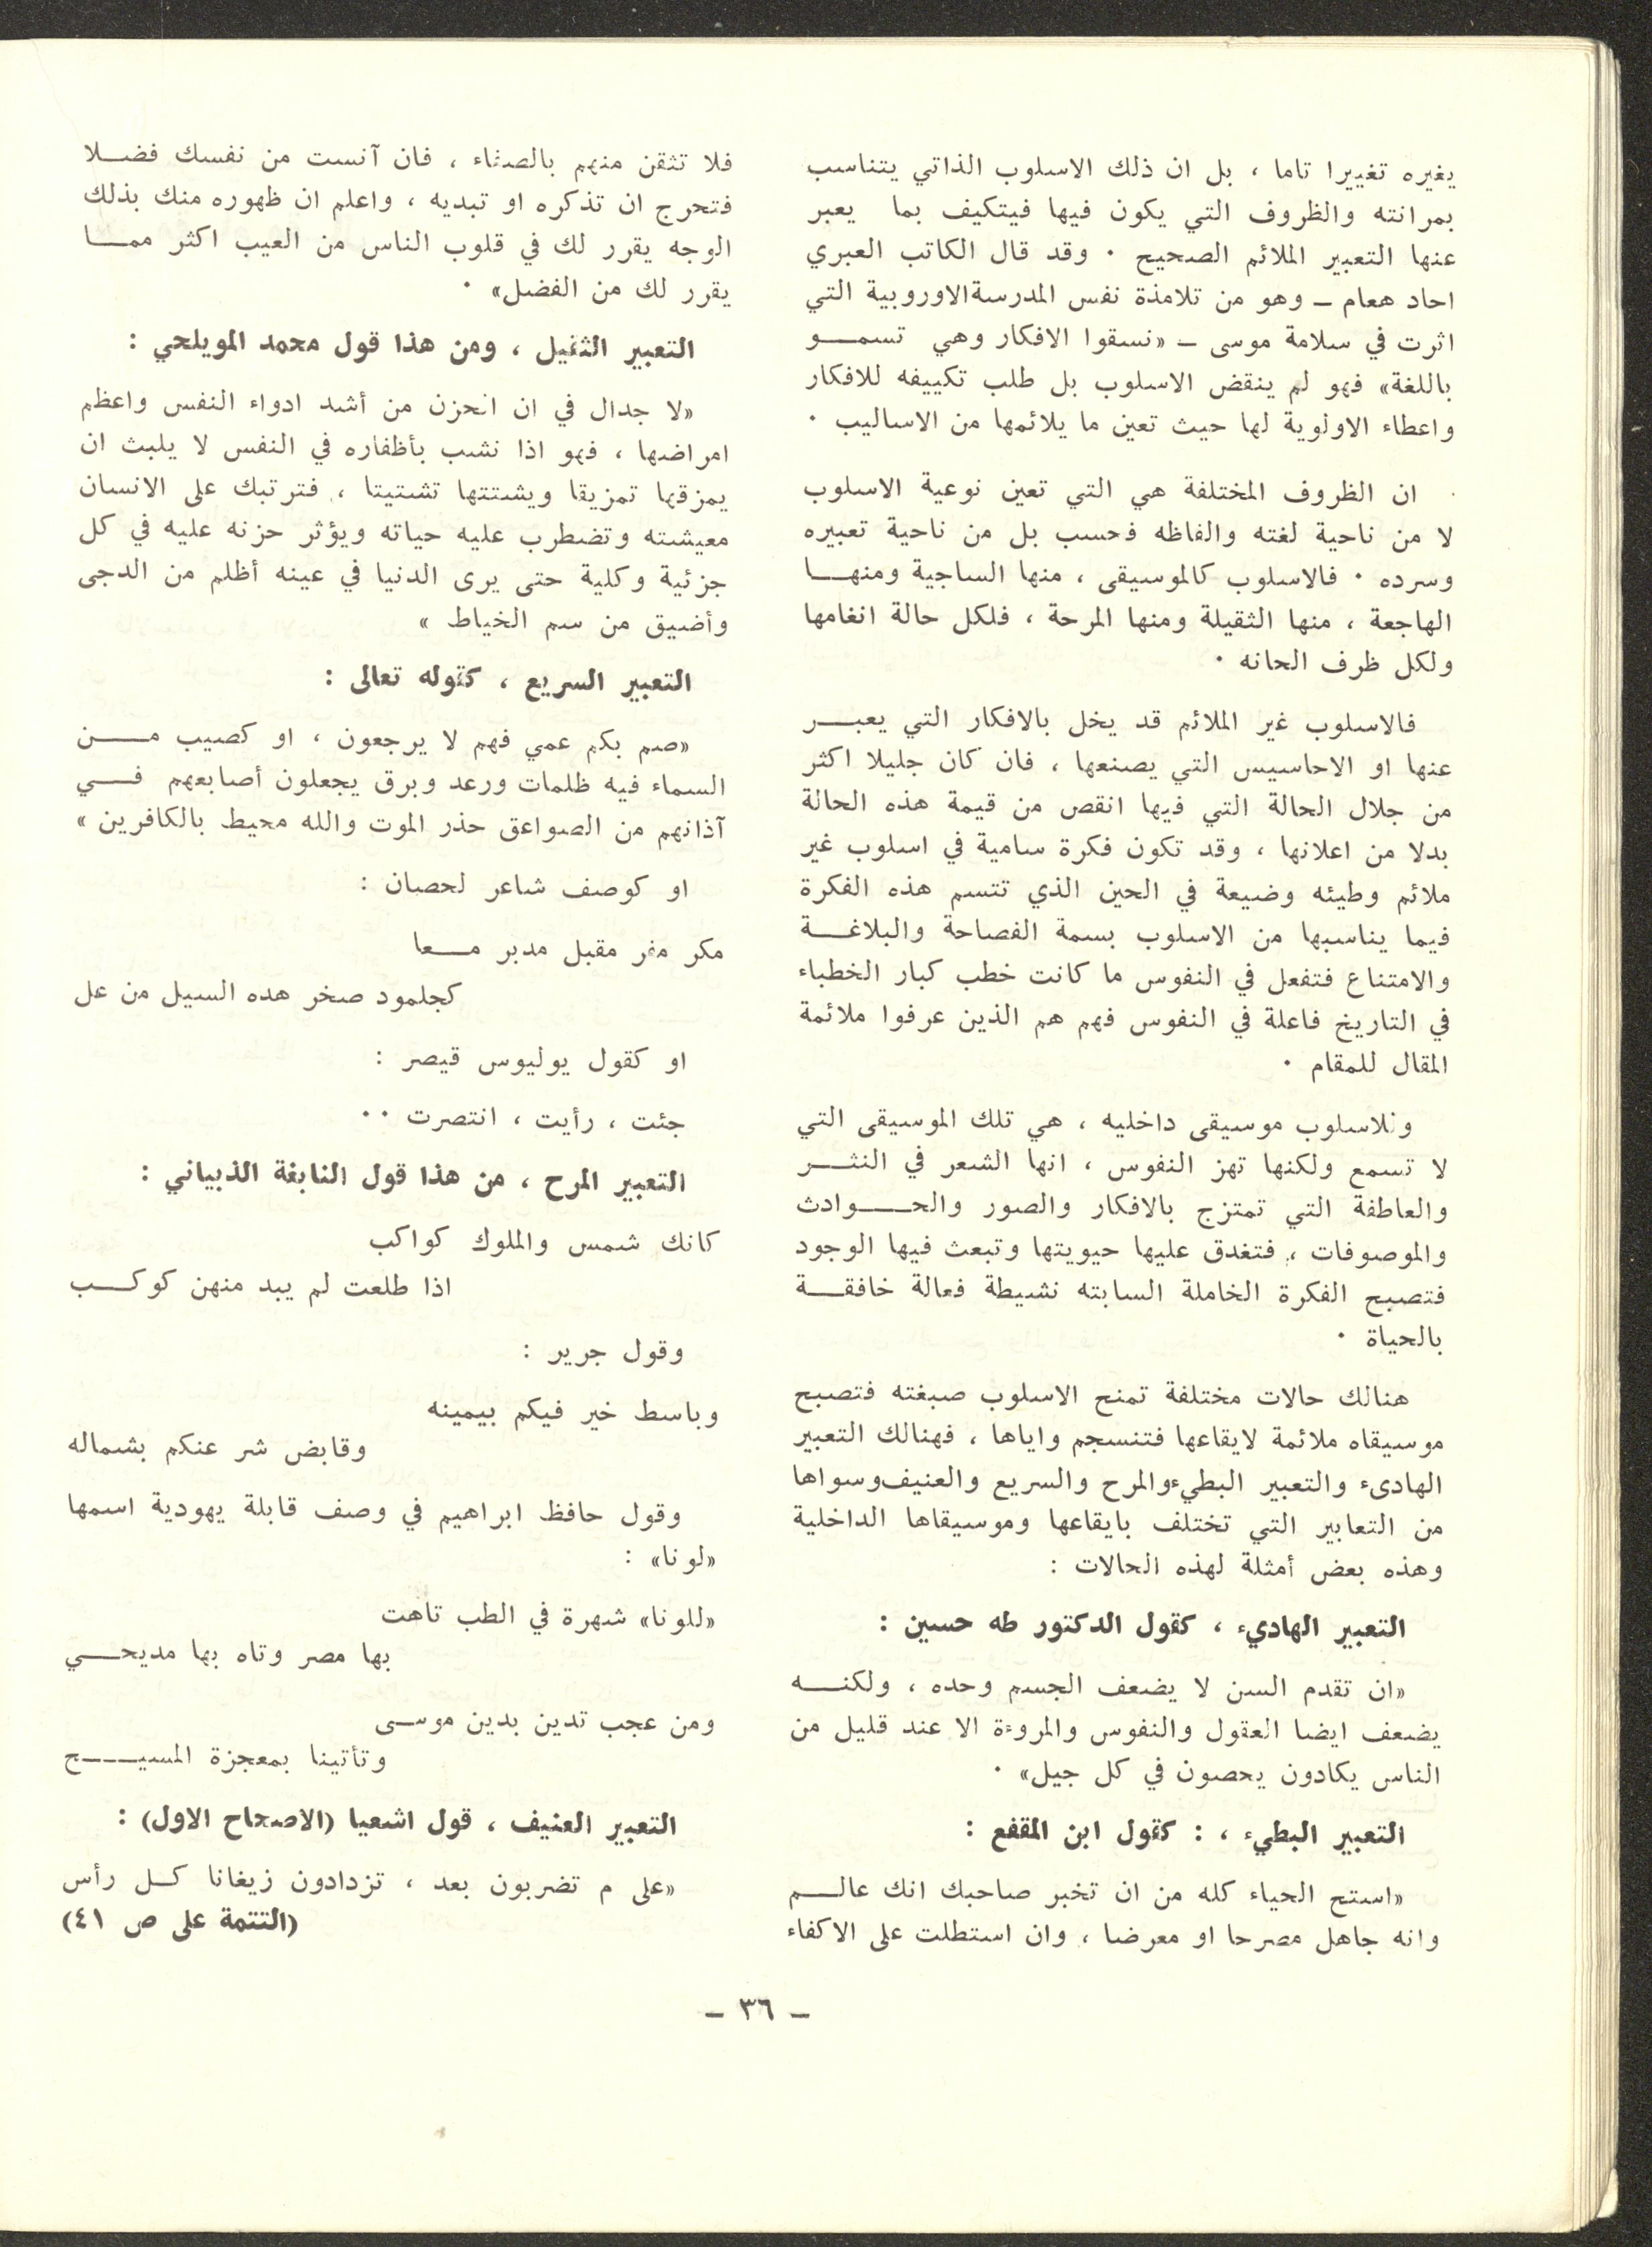 يغيره تغييرا تاما ، بل ان ذلك الاسلوب الذاتي يتناسب
بمرانته والظروف التي يكون فيها فيتكيف بما يعبر
عنها التعبير الملائم الصحيح . وقد قال الكاتب العبري
احاد هعام ــ وهو من تلامذة نفس المدرسة الاوروبية التي
اثرت في سلامة موسى ــ «نسقوا الافكار وهي تسمو
باللغة» فهو لم ينقض الاسلوب بل طلب تكييفه للافكار
واعطاء الاولوية لها حيث تعين ما يلائمها من الاساليب .
ان الظروف المختلفة هي التي تعين نوعية الاسلوب
لا من ناحية لغته والفاظه فحسب بل من ناحية تعبيره
وسرده . فالاسلوب كالموسيقى ، منها الساجية ومنها
الهاجعة ، منها الثقيلة ومنها المرحة ، فلكل حالة انغامها
ولكل ظرف الحانه .
فالاسلوب غير الملائم قد يخل بالافكار التي يعبر
عنها او الاحاسيس التي يصنعها ، فان كان جليلا اكثر
من جلال الحالة التي فيها انقص من قيمة هذه الحالة
بدلا من اعلانها ، وقد تكون فكرة سامية في اسلوب غير
ملائم وطيئه وضيعة في الحين الذي تتسم هذه الفكرة
فيما يناسبها من الاسلوب بسمة الفصاحة والبلاغة
والامتناع فتفعل في النفوس ما كانت خطب كبار الخطباء
في التاريخ فاعلة في النفوس فهم هم الذين عرفوا ملائمة
المقال للمقام .
وللاسلوب موسيقى داخليه ، هي تلك الموسيقى التي
لا تسمع ولكنها تهز النفوس ، انها الشعر في النثر
والعاطفة التي تمتزج بالافكار والصور والحوادث
والموصوفات ، فتغدق عليها حيويتها وتبعث فيها الوجود
فتصبح الفكرة الخاملة السابته نشيطة فعالة خافقة
بالحياة .
هنالك حالات مختلفة تمنح الاسلوب صبغته فتصبح
موسيقاه ملائمة لايقاعها فتنسجم واياها ، فهنالك التعبير
الهادىء والتعبير البطيء والمرح والسريع والعنيف وسواها
من التعابير التي تختلف بايقاعها وموسيقاها الداخلية
وهذه بعض أمثلة لهذه الحالات :
التعبير الهاديء ، كقول الدكتور طه حسين :
«ان تقدم السن لا يضعف الجسم وحده ، ولكنه
يضعف ايضا العقول والنفوس والمروءة الا عند قليل من
الناس يكادون يحصون في كل جيل» .
التعبير البطيء ، : كقول ابن المقفع :
«استح الحياء كله من ان تخبر صاحبك انك عالم
وانه جاهل مصرحا او معرضا ، وان استطلت على الاكفاء
فلا تثقن منهم بالصفاء ، فان آنست من نفسك فضلا
فتحرج ان تذكره او تبديه ، واعلم ان ظهوره منك بذلك
الوجه يقرر لك في قلوب الناس من العيب اكثر مما
يقرر لك من الفضل» .
التعبير الثقيل ، ومن هذا قول محمد المويلحي :
«لا جدال في ان الحزن من أشد ادواء النفس واعظم
امراضها ، فهو اذا نشب بأظفاره في النفس لا يلبث ان
يمزقها تمزيقا ويشتتها تشتيتا ، فترتبك على الانسان
معيشته وتضطرب عليه حياته ويؤثر حزنه عليه في كل
جزئية وكلية حتى يرى الدنيا في عينه أظلم من الدجى
وأضيق من سم الخياط »
التعبير السريع ، كقوله تعالى :
«صم بكم عمي فهم لا يرجعون ، او كصيب من
السماء فيه ظلمات ورعد وبرق يجعلون أصابعهم في
آذانهم من الصواعق حذر الموت والله محيط بالكافرين »
او كوصف شاعر لحصان :
مكر مفر مقبل مدبر معا
كجلمود صخر هده السيل من عل
او كقول يوليوس قيصر :
جئت ، رأيت ، انتصرت ..
التعبير المرح ، من هذا قول النابغة الذبياني :
كانك شمس والملوك كواكب
اذا طلعت لم يبد منهن كوكب
وقول جرير :
وباسط خير فيكم بيمينه
وقابض شر عنكم بشماله
وقول حافظ ابراهيم في وصف قابلة يهودية اسمها
«لونا» :
«للونا» شهرة في الطب تاهت
بها مصر وتاه بها مديحي
ومن عجب تدين بدين موسى
وتأتينا بمعجزة المسيح
التعبير العنيف ، قول اشعيا (الاصحاح الاول) :
«على م تضربون بعد ، تزدادون زيغانا كل رأس
(التتمة على ص ٤١)
ــ ٣٦ ــ